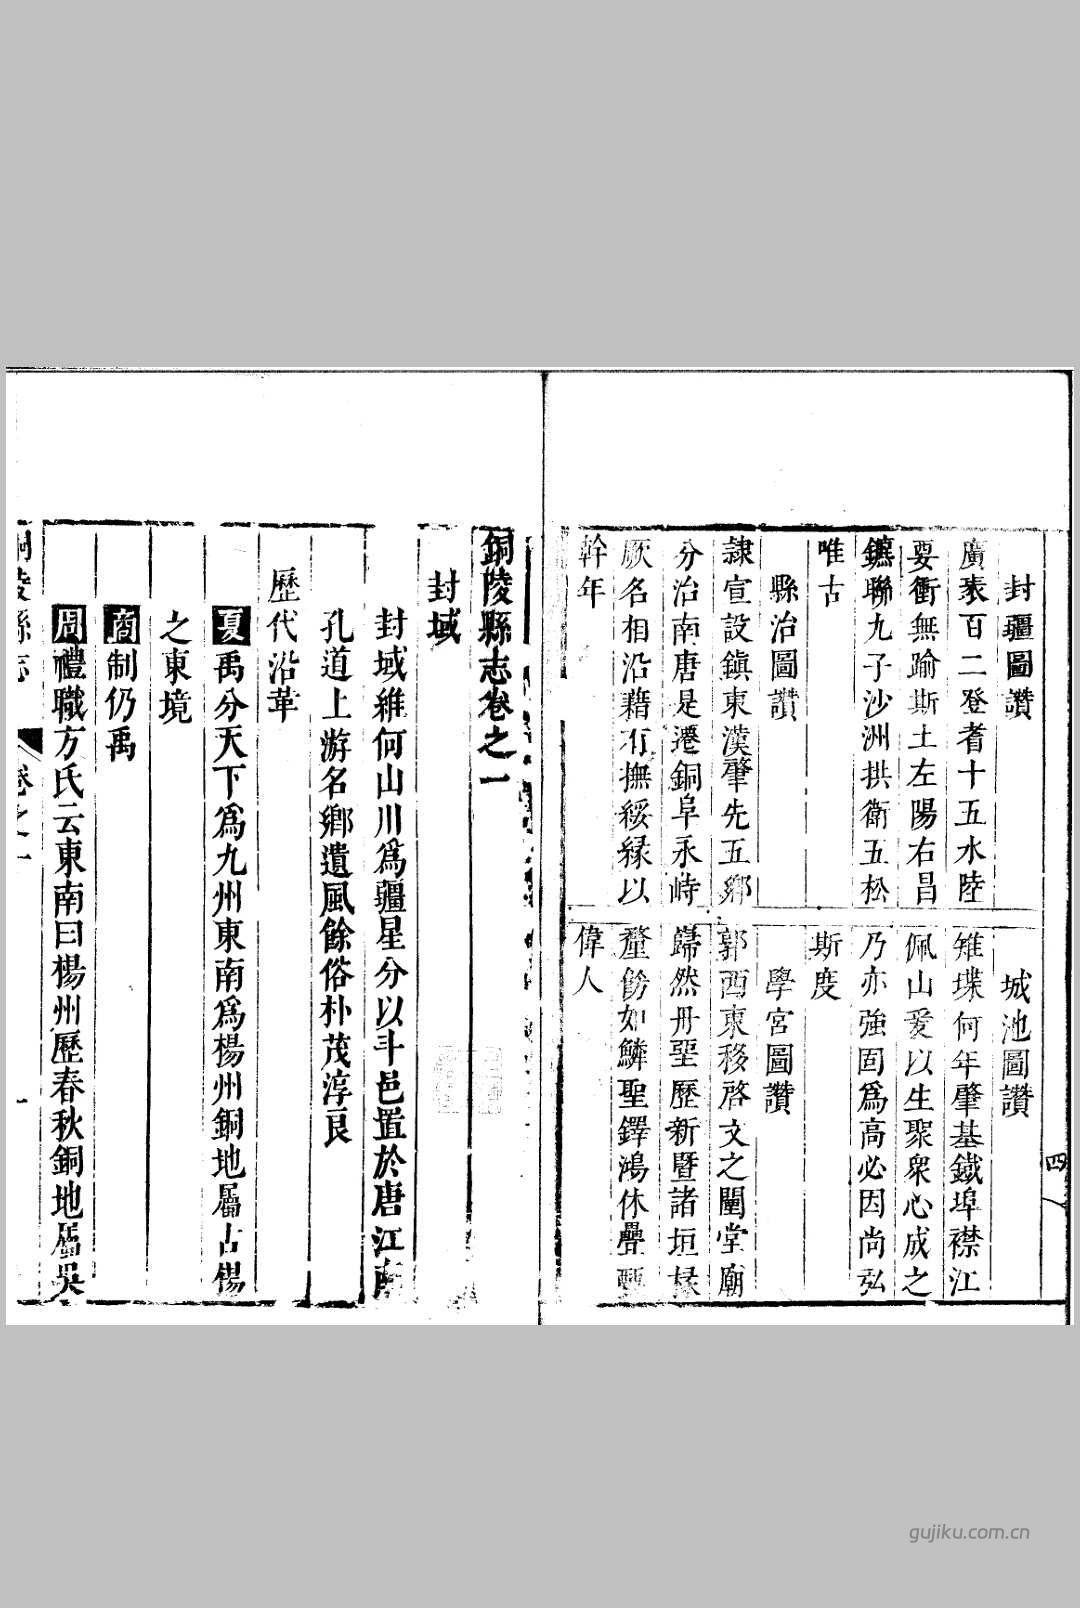 封疆圖讚
廣袤百二登耆十五水陸
要衝無踰斯土左陽右昌
鑣聯九子沙洲拱衛五松
唯古
縣治圖讚
隷宣設鎮東漢肇先五鄉
分治南唐是遷銅阜永峙
厥名相沿藉有撫綏緑以
幹年
城池圖讚
雉堞何年肇基鐵埠襟江
佩山爰以生聚衆心成之
乃亦強固爲高必因尚弘
斯度
學宮圖讚
郭西東移啓文之閫堂廟
巋然丹堊歷新暨諸垣
釐飭如鱗聖鐸鴻休疊
偉人
四
銅陵縣志卷之一
封域
封域維何山川爲疆星分以斗邑置於唐江南
孔道上游名鄉遺風餘俗朴茂淳良
歷代沿革
夏禹分天下爲九州東南爲楊州銅地屬古楊
之東境
商制仍禹
周禮職方氏云東南曰楊州歷春秋銅地屬吳
銅陵縣志
卷之一
一
gujiku.com.cn